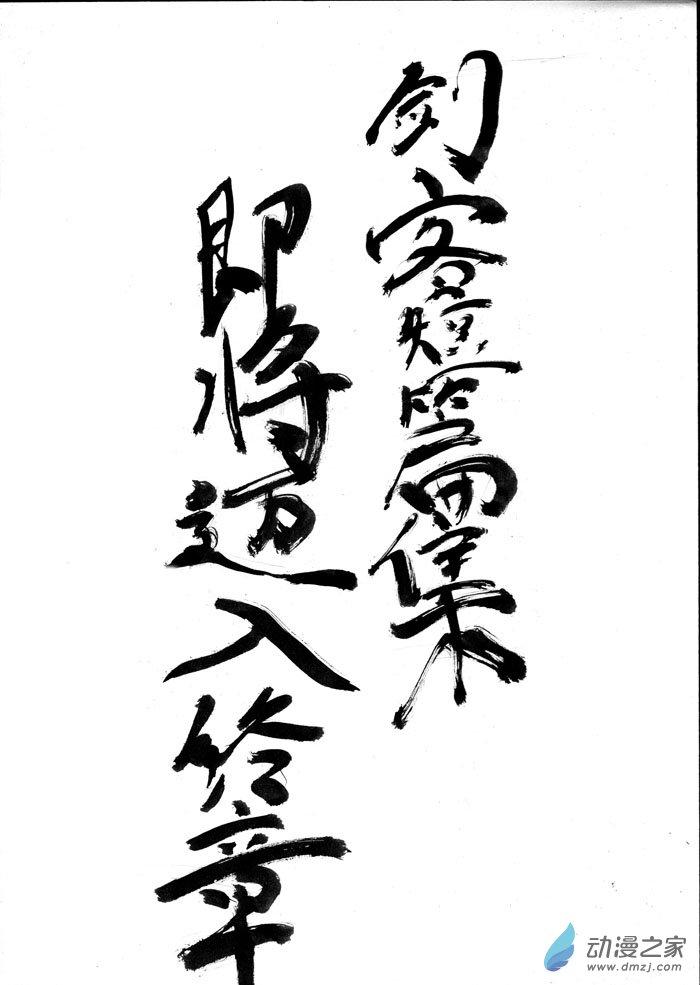 剑客短篇集
即将迈入终章
动漫之家
www.dmzj.com